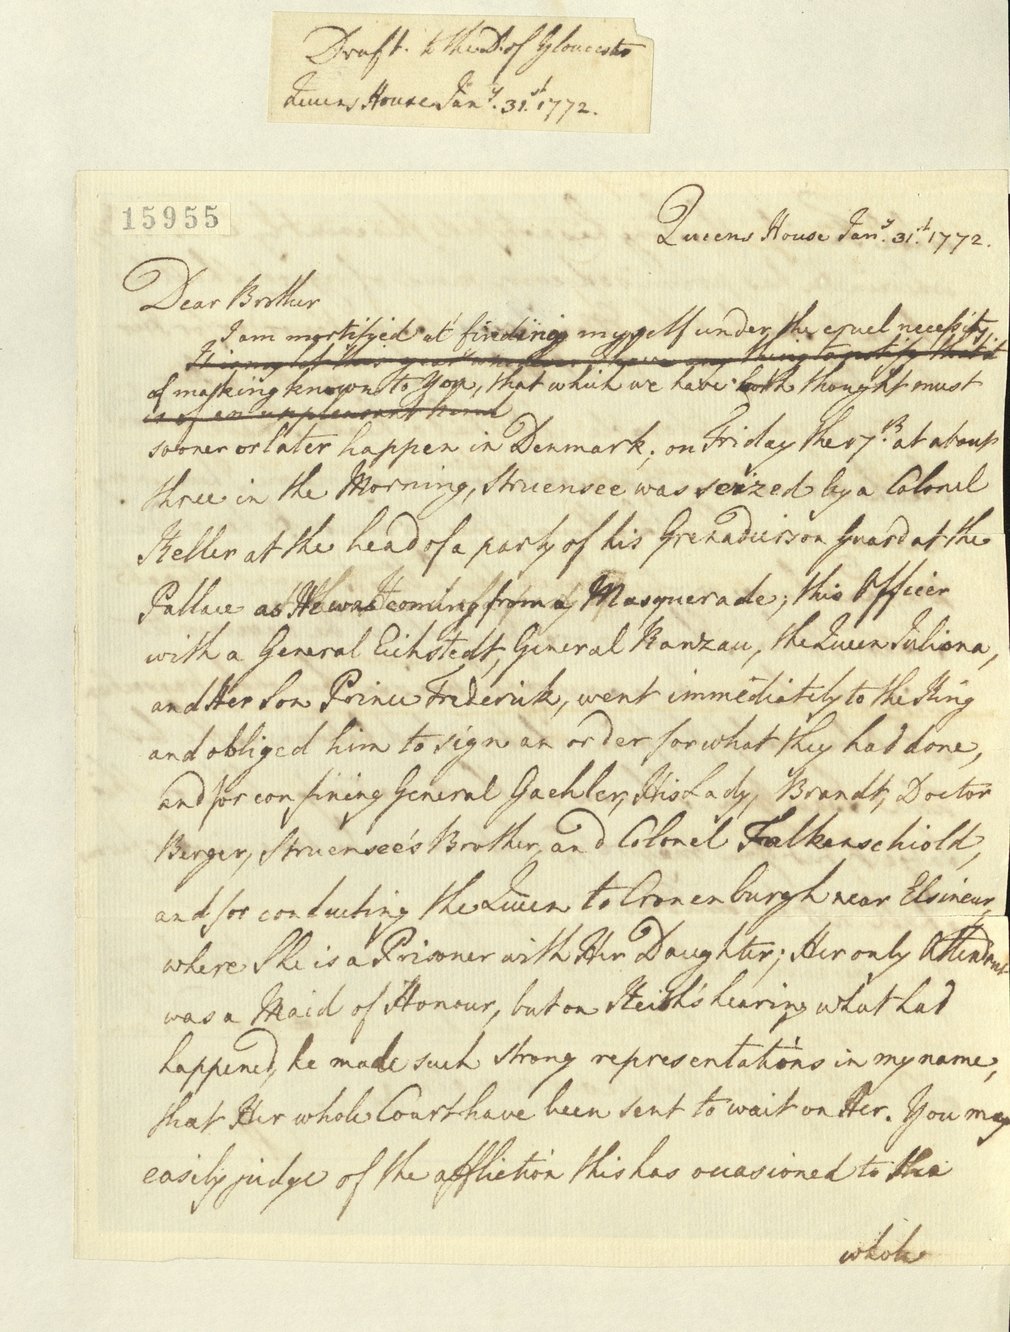 Draft. to the D. of Gloucester
Queens House Jan.y 31.st 1772.
15955
Queens House Jan.y 31.st 1772.
Dear Brother
I am mortifyed at finding myself under the cruel necessity
of making known to You, that which we have both thought must
sooner or later happen in Denmark; on Friday the 17.th at about
three in the Morning, Struensee was seized by a Colonel
Keller at the head of a party of his Grenadiers on guard at the
Pallace as He was coming from a Masquerade; this Officer
with a General Eichstedt, General Ranzau, the Queen Juliana,
and Her Son Prince Frederick, went immediately to the King
and obliged him to sign an order for what they had done,
and for confining General Gaehler, His Lady, Brandt, Doctor
Berger, Struensee's Brother, and Colonel Falkenschiold,
and for conducting the Queen to Cronenburgh near Elsineur,
where She is a Prisoner with Her Daughter; Her only Attendant
was a Maid of Honour, but on Keith's hearing what had
happened, he made such strong representations in my name,
that Her whole Court have been sent to wait on Her. You may
easily judge of the affliction this has occasioned to the
whole